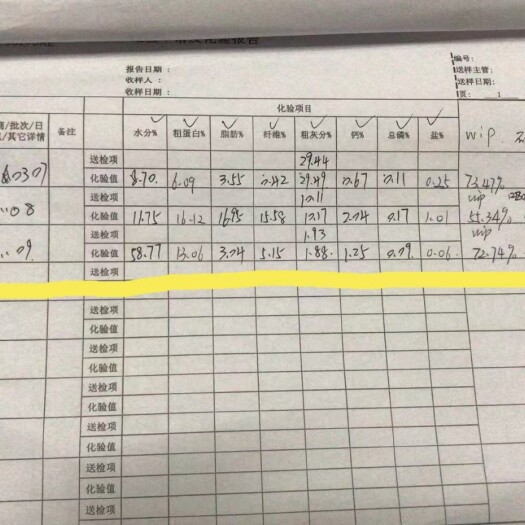 化验报告
编号:
报告日期: 送样主管:
收样人: 送样日期:
收样日期: 页: 1
化验项目
商/批次/日 备注 水分% 粗蛋白% 脂肪% 纤维% 粗灰分% 钙% 总磷% 盐% wip
/其它详情
送检项 29.44
化验值 8.70 6.09 3.55 29.49 0.67 0.11 0.25 73.47%
送检项 10.11 wip
08 化验值 11.75 16.12 16.95 15.58 2.74 0.17 1.01 55.34%
送检项 1.93 wip
09 化验值 58.77 13.06 3.74 5.15 1.88 1.25 0.79 0.06 72.74%
送检项
送检项
化验值
送检项
化验值
送检项
化验值
送检项
化验值
送检项
化验值
送检项